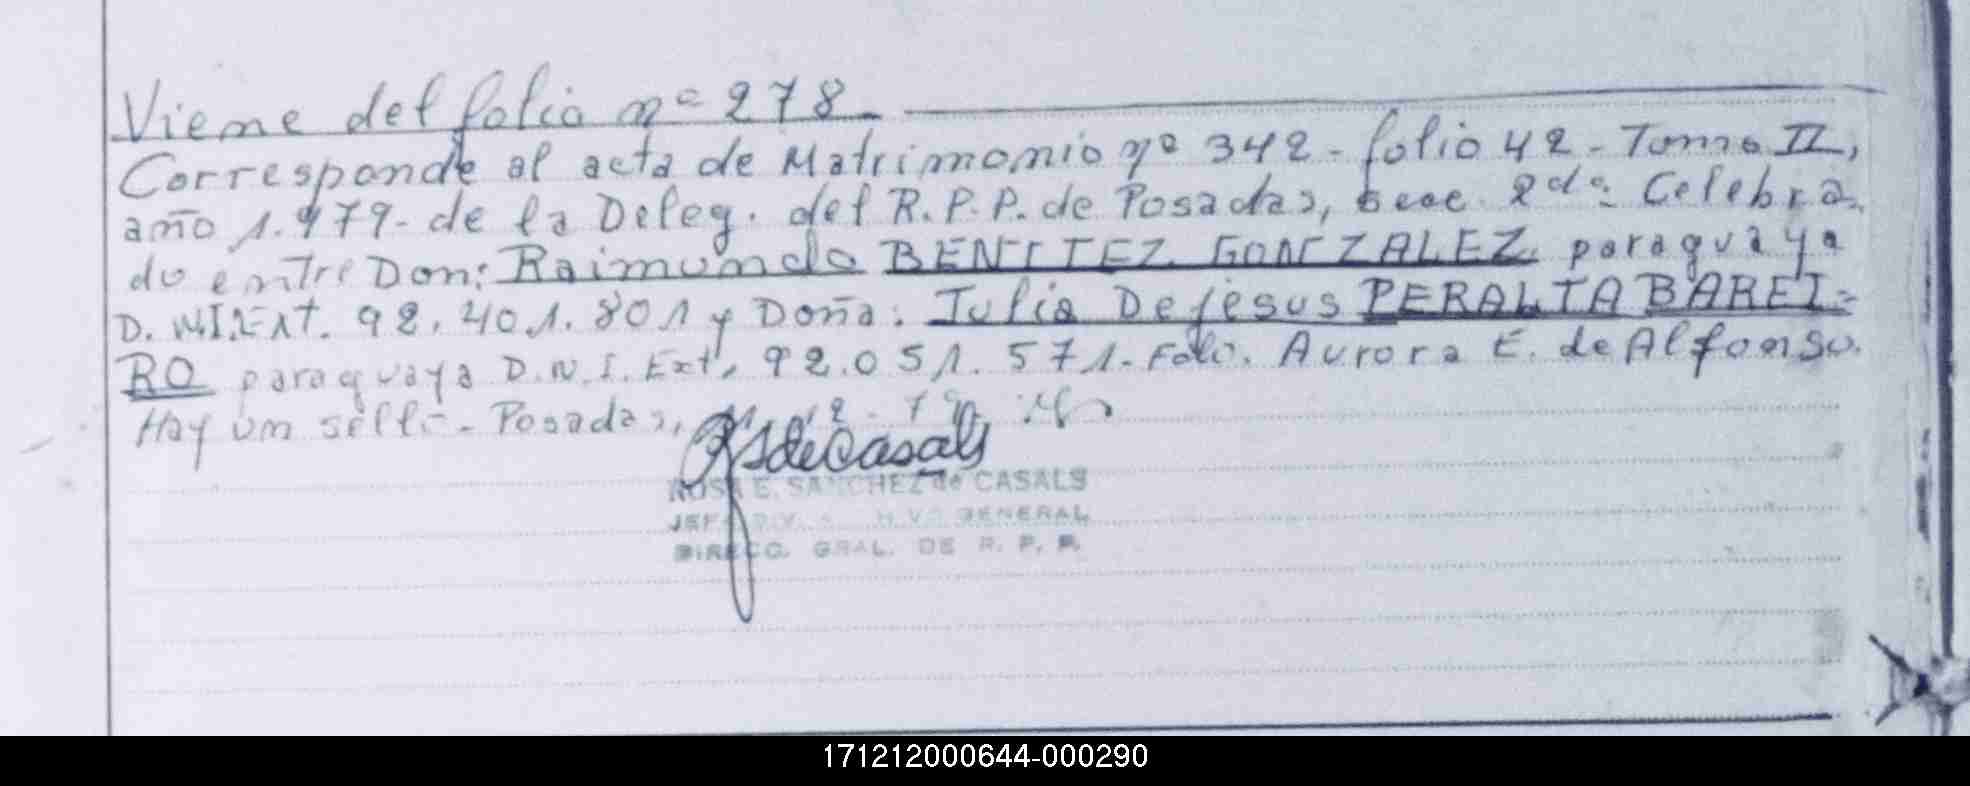 Viene del folio nº 278
Corresponde al acta de Matrimonio nº 342 - folio 42 - Tomo II,
año 1.979 - de la Deleg. del R.P.P. de Posadas, secc. 2da. Celebra
do entre Don: Raimundo BENITEZ GONZALEZ paraguaya
D.N.I.Ext. 92.401.801 y Doña: Julia De jesus PERALTA BAREI=
RO paraguaya D.N.I. Ext. 92.051.571. Fdo. Aurora E. de Alfonso.
Hay un sello - Posadas,
ROSA E. SANCHEZ de CASALS
JEFE GENERAL
DIRECC. GRAL. DE R. P. P.
171212000644-000290